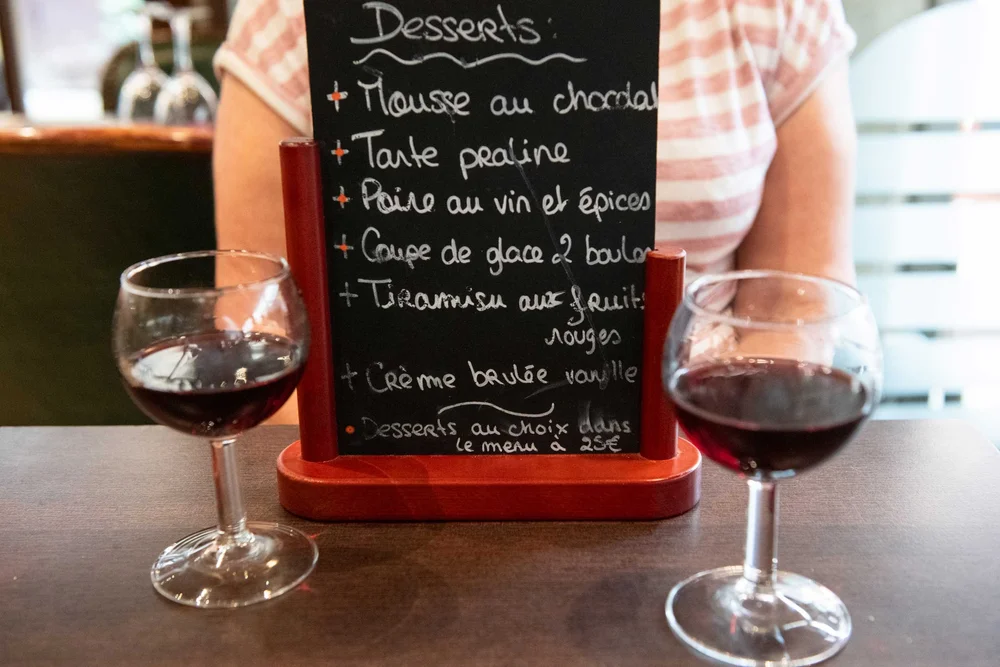 Desserts:
+ Mousse au chocolat
+ Tarte praline
+ Poire au vin et épices
+ Coupe de glace 2 boules
+ Tiramisu aux fruits
rouges
+ Crème brulée vanille
• Desserts au choix dans
le menu à 25€